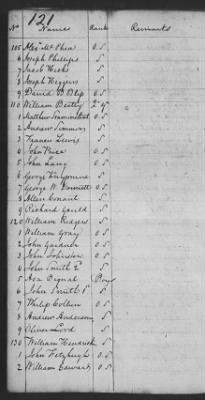 121
No Names Rank Remarks
105 Alex McShea O.S
6 Joseph Phillips S
7 Jacob Hicks S
8 Joseph Higgens S
9 David O.S
110 William Beatty
1 Matthew O.S
2 Andrew Simmons S
3 Francis Lewis S
4 John Price O.S
5 John Lang O.S
6 George S
7 George W. O.S
8 Allen Conant S
9 Richard Gould S
120 William Rodgers S
1 William Gray O.S
2 John Gardner O.S
3 John Johnston O.S
4 John Smith 2d S
5 Asa Bignal Boy
6 John Smith 1st S
7 Philip Collier O.S
8 Andrew Anderson S
9 Oliver Lord S
130 William Kendrick S
1 John Fitzhugh O.S
2 William Edwards O.S